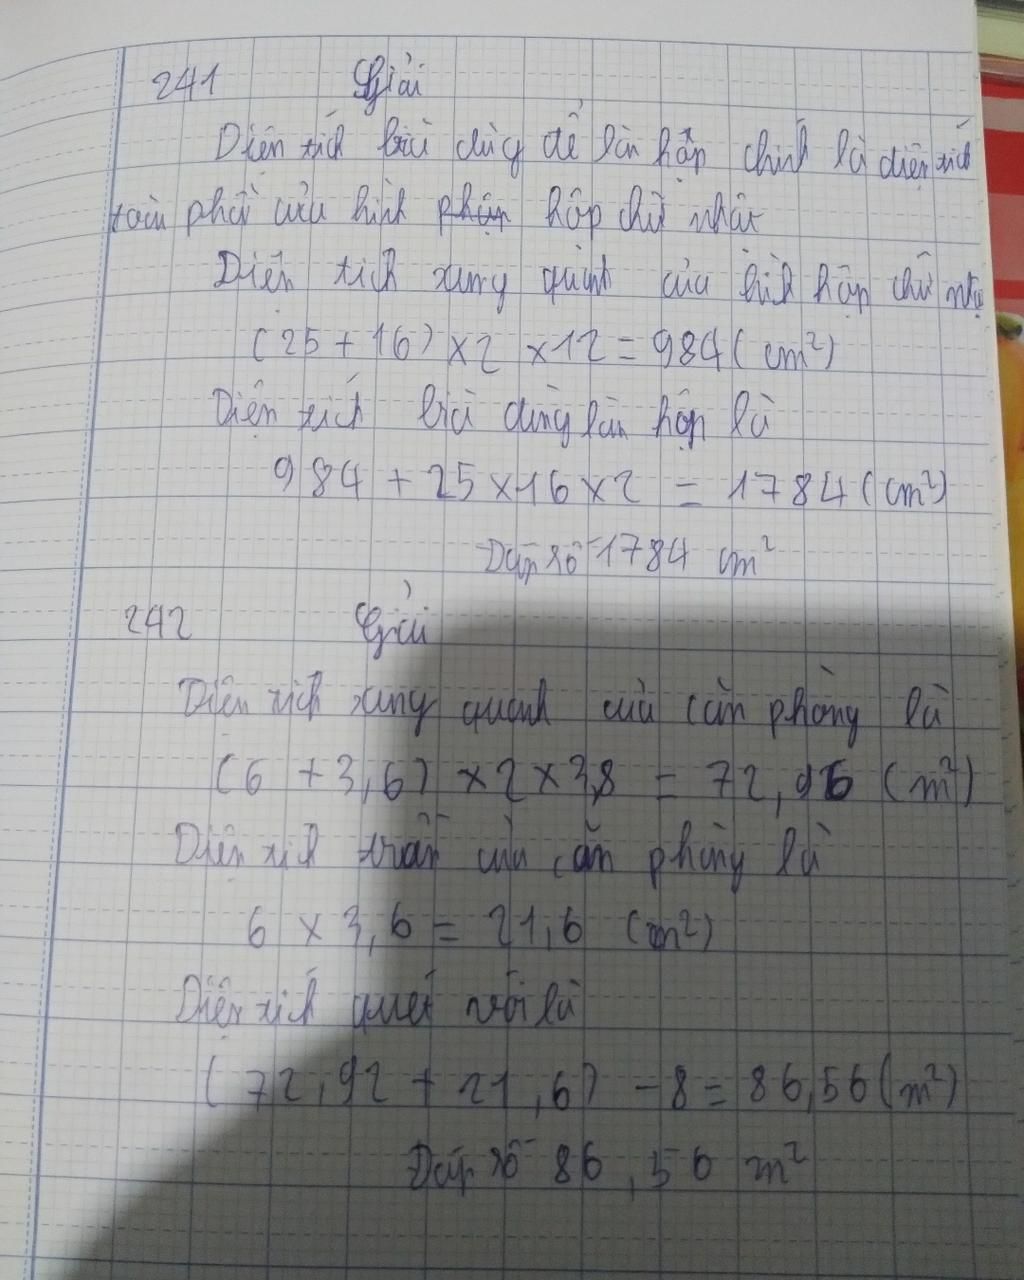 241 Giải
Diện tích bìa dùng để làm hộp chính là diện tích
toàn phần của hình phận hộp chữ nhật
Diện tích xung quanh của hình hộp chữ nhật
(25 + 16) × 2 × 12 = 984 (cm²)
Diện tích bìa dùng làm hộp là
984 + 25 × 16 × 2 = 1784 (cm²)
Đáp số 1784 cm²
242 Giải
Diện tích xung quanh của căn phòng là
(6 + 3,6) × 2 × 3,8 = 72,96 (m²)
Diện tích trần của căn phòng là
6 × 3,6 = 21,6 (m²)
Diện tích quét vôi là
(72,92 + 21,6) - 8 = 86,56 (m²)
Đáp số 86,56 m²